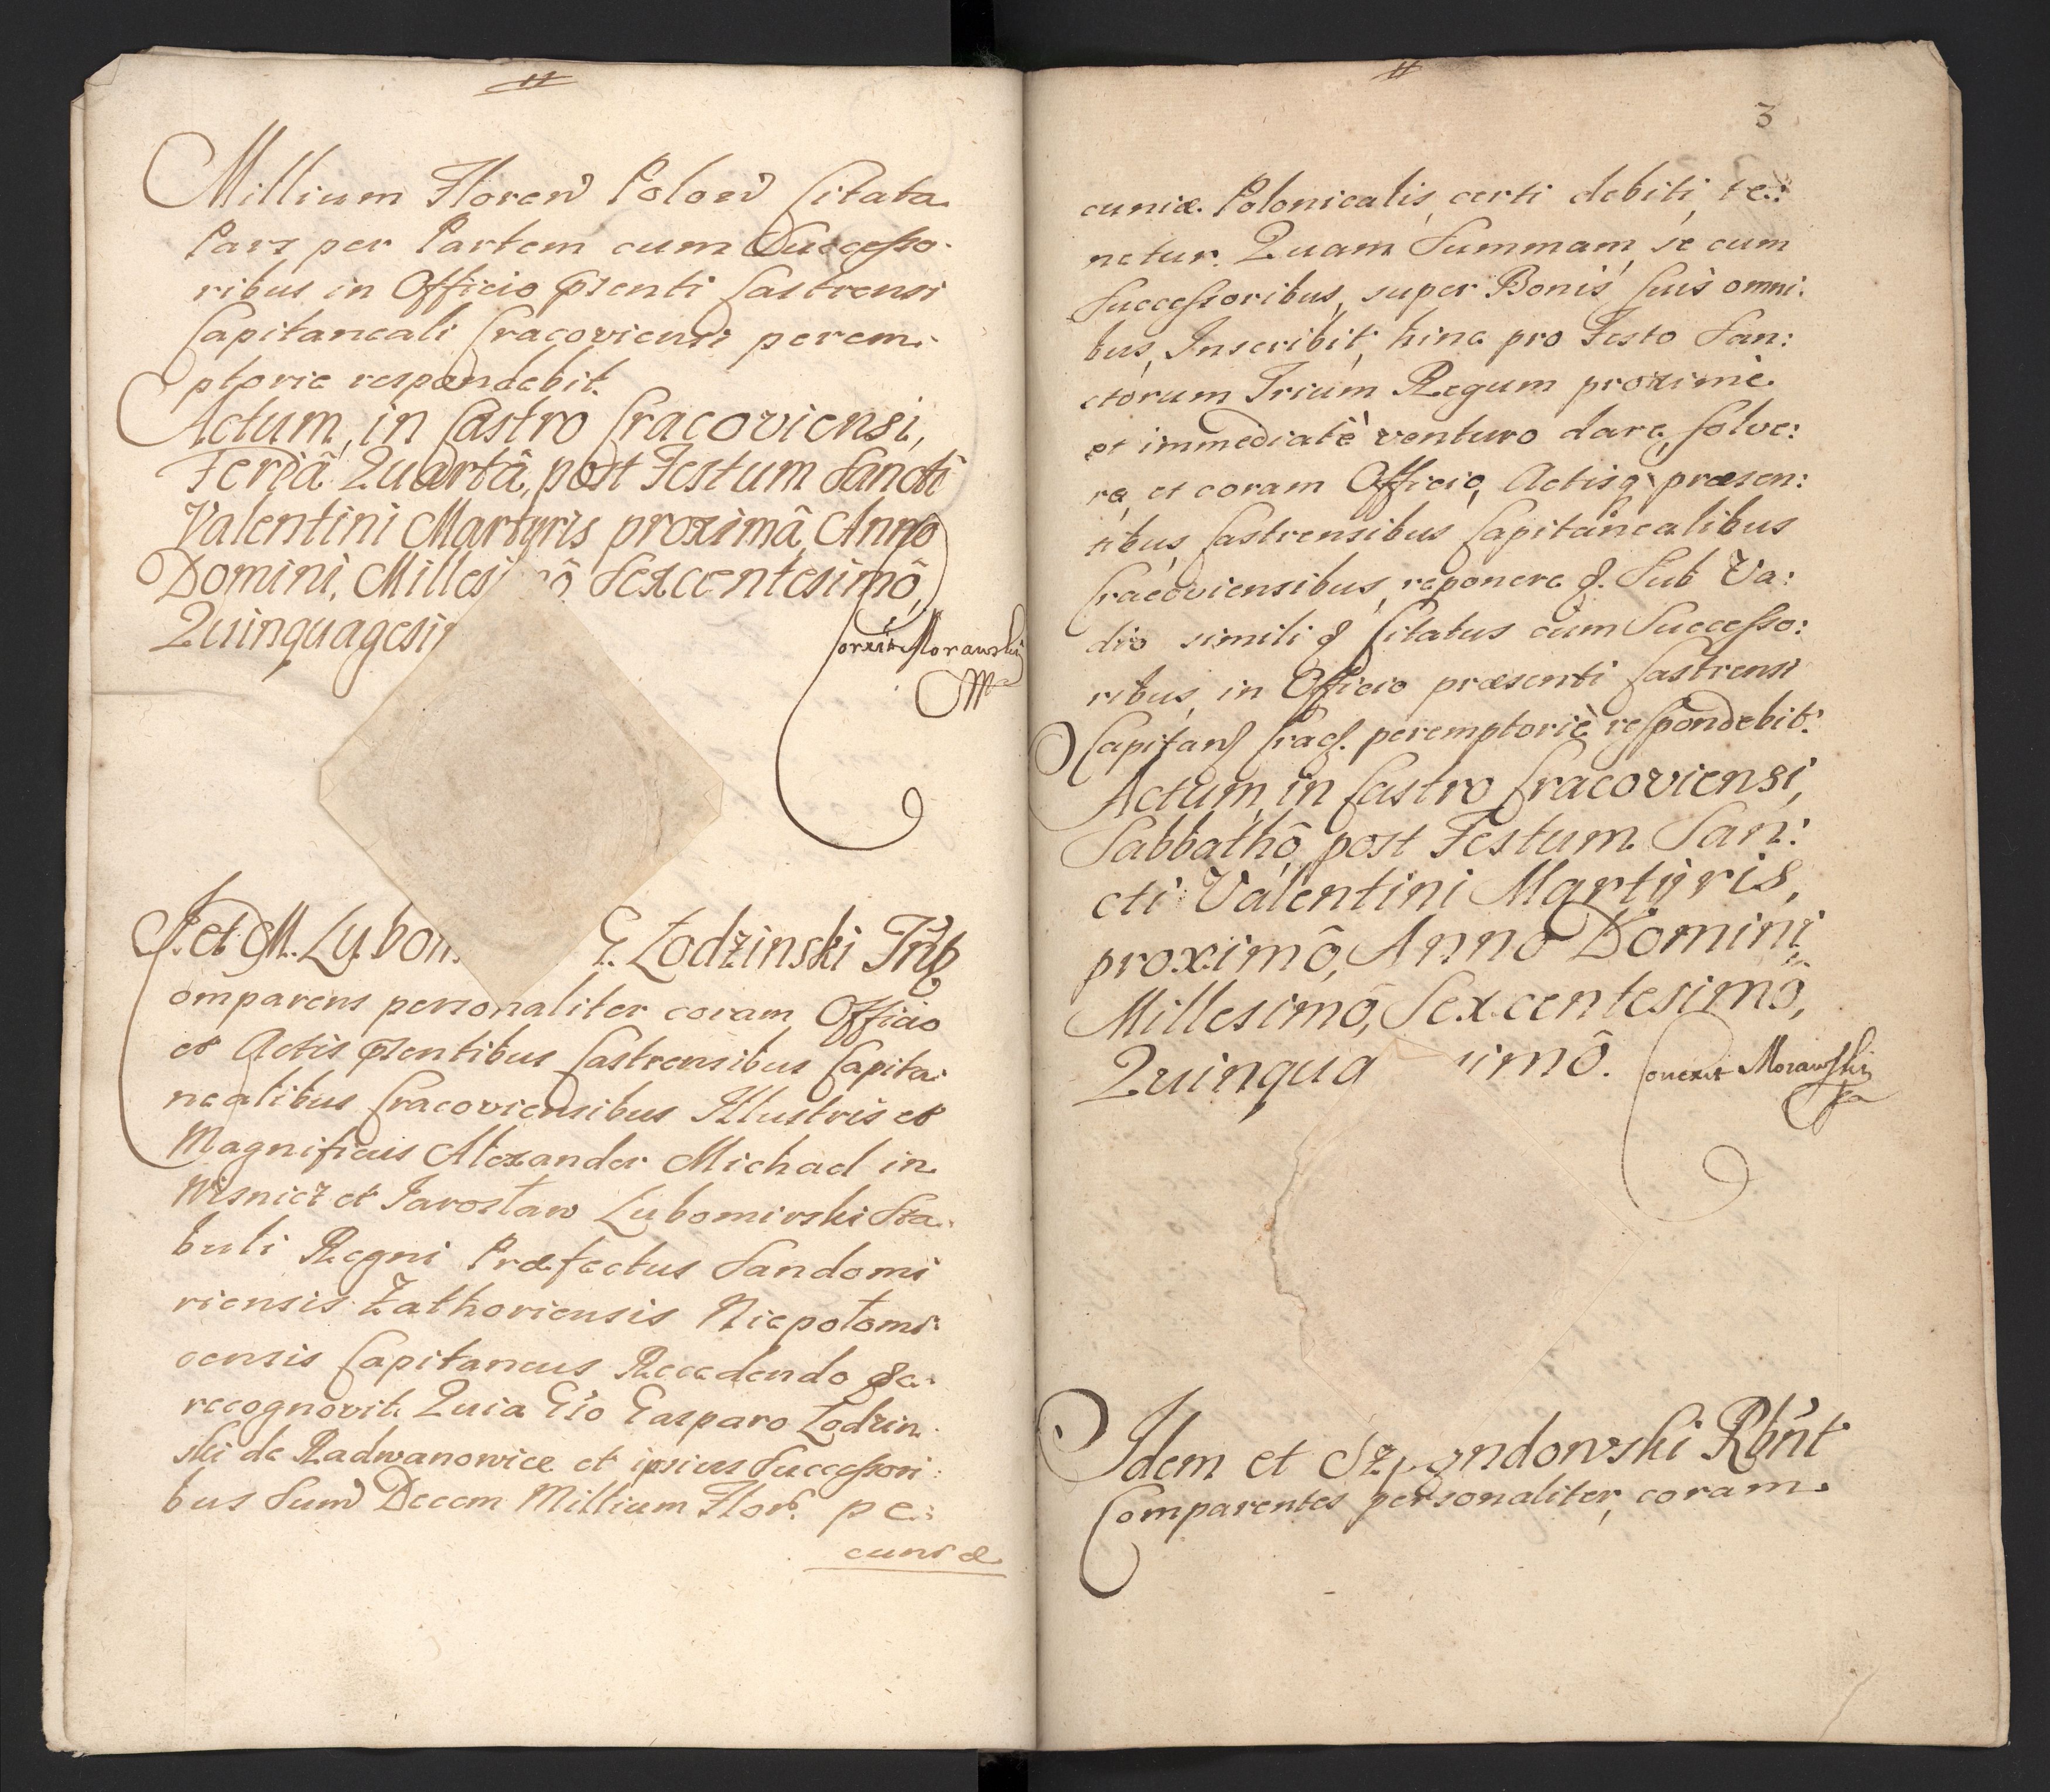 Millium Floren Polon Citata
Pars per Partem cum Successo-
ribus in Officio pnti Castrensi
Capitaneali Cracoviensi perem-
ptorie respondebit.
Actum, in Castro Cracoviensi,
Feriâ Quartâ, post Festum Sancti
Valentini Martyris proximâ, Anno
Domini, Milles mô Sexcentesimô,
Quinquagesi
Morawski
J. et M. Lubom G. Łodziński Inb
omparens personaliter coram Officio
et Actis pntibus Castrensibus Capita-
nealibus Cracoviensibus Illustris et
Magnificus Alexander Michael in
Wisnicz et Jarosław Lubomirski Sta-
buli Regni Præfectus Sandomi
riensis Zathoriensis Niepołomi-
censis Capitaneus Recedendo &c.
recognovit. Quia Gso Gasparo Łodzin-
ski de Radwanowice et ipsius Successori:
bus Sum Decem Millium Flor. pe:
cuniæ
3
cuniæ Polonicalis, certi debiti, te:
netur. Quam Summam, se cum
Successoribus, super Bonis suis omni:
bus, Inscribit, hinc pro Festo San:
ctorum Trium Regum proximè
et immediatè venturo dare, solve:
re, et coram Officio, Actisq præsen:
tibus Castrensibus Capitanealibus
Cracoviensibus, reponere &. Sub Va:
dio simili & Citatus cum Successo:
ribus, in Officio præsenti Castrensi
Capitan Crac. peremptoriè respondebit.
Actum, in Castro Cracoviensi,
Sabbathô, post Festum San:
cti Valentini Martyris,
proximô, Anno Domini,
Millesimô, Sexcentesimô,
Quinqua simô. Correxit Morawski
Idem et Sz ndowski Rbnt
Comparentes personaliter, coram